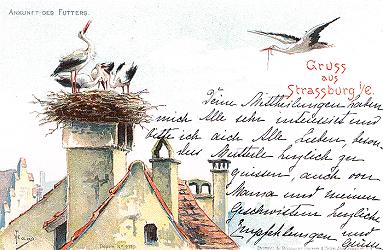 ANKUNFT DES FUTTERS.
Gruss
aus
Strassburg i/E.
Deine Mittheilungen haben
mich Alle sehr interessirt und
bitte ich dich Alle Lieben, beson
das Mutterle herzlich zu
grüssen, auch von
Mama und meinen
Geschwistern herzliche
Empfehlungen und